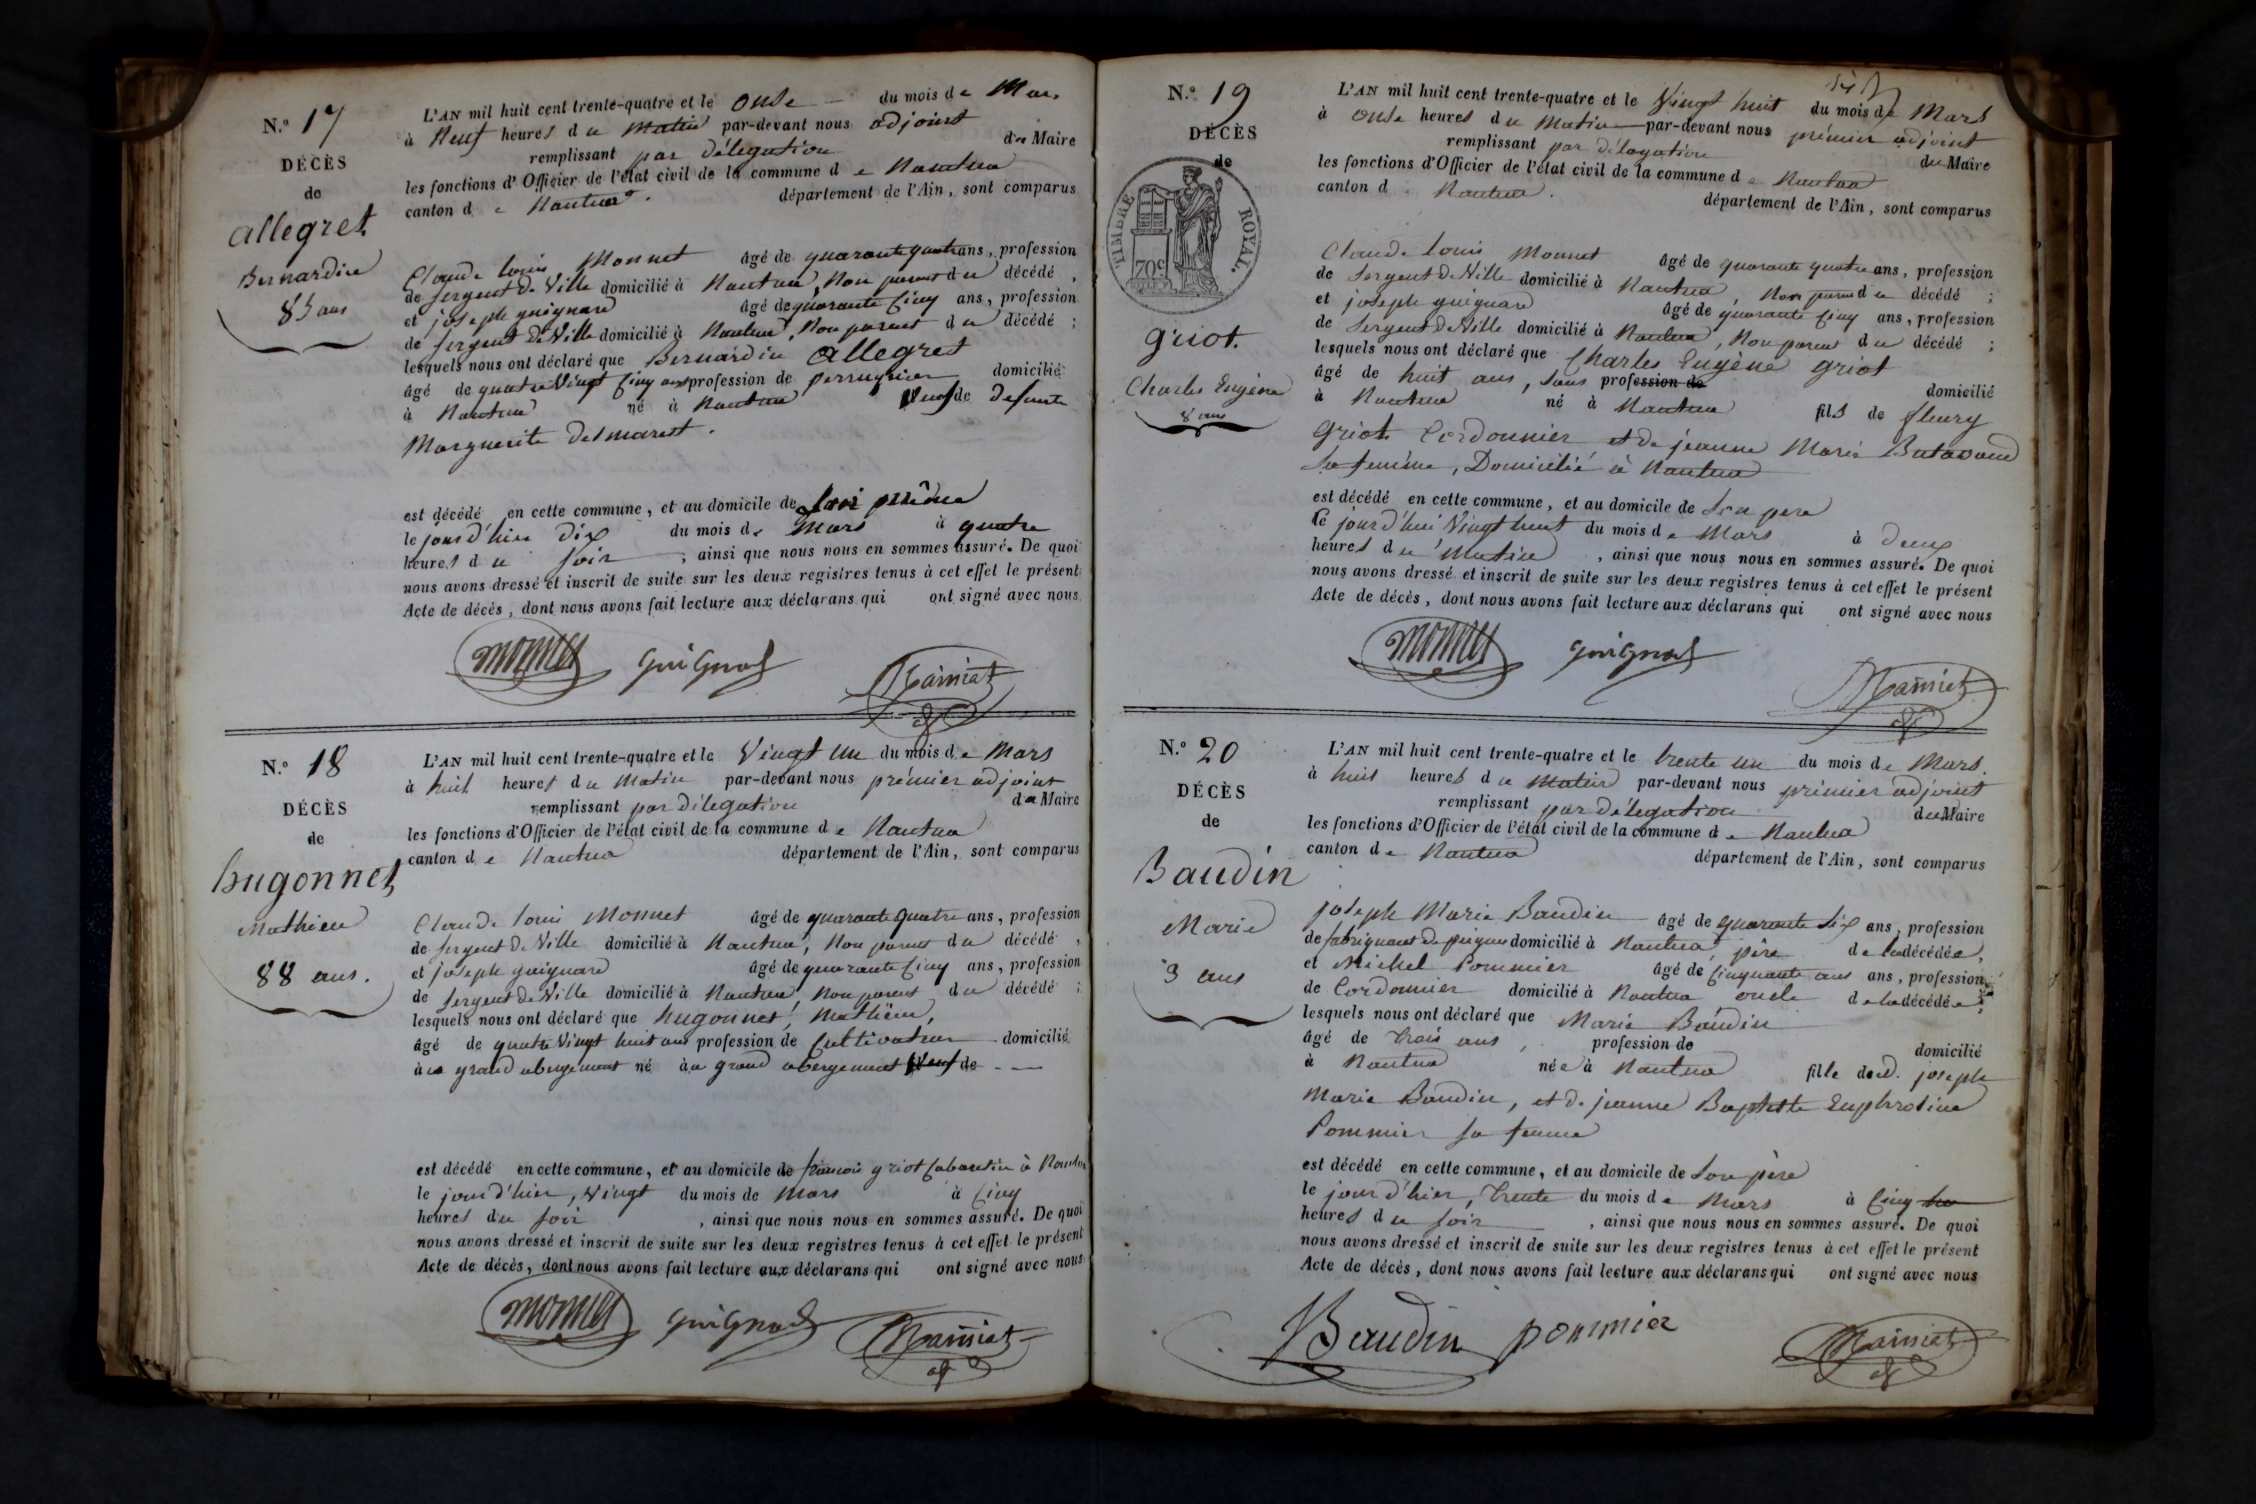 N.º 17
DÉCÈS
de
allegret
Bernardin
85 ans
L'AN mil huit cent trente-quatre et le onse du mois de Mars
à Neuf heures du matin par-devant nous adjoint
remplissant par délégation du Maire
les fonctions d'Officier de l'état civil de la commune de Nantua
canton de Nantua. département de l'Ain, sont comparus
Claude Louis Monnet âgé de quarante quatre ans, profession
de sergent de Ville domicilié à Nantua, Non parent du décédé,
et joseph guignard âgé de quarante cinq ans, profession
de sergent de Ville domicilié à Nantua, Non parent du décédé;
lesquels nous ont déclaré que Bernardin allegret
âgé de quatre Vingt cinq ans profession de perruquier domicilié
à Nantua né à Nantua Veuf de defunte
Marguerite Desmarest.
est décédé en cette commune, et au domicile de lui même
le jour d'hier dix du mois de Mars à quatre
heures du soir, ainsi que nous nous en sommes assuré. De quoi
nous avons dressé et inscrit de suite sur les deux registres tenus à cet effet le présent
Acte de décès, dont nous avons fait lecture aux déclarans qui ont signé avec nous
Monnet guignard
N.º 18
DÉCÈS
de
hugonnet
Mathieu
88 ans.
L'AN mil huit cent trente-quatre et le Vingt un du mois de Mars
à huit heures du Matin par-devant nous prémier adjoint
remplissant par délégation du Maire
les fonctions d'Officier de l'état civil de la commune de Nantua
canton de Nantua département de l'Ain, sont comparus
Claude Louis Monnet âgé de quarante quatre ans, profession
de sergent de Ville domicilié à Nantua, Non parent du décédé,
et joseph guignard âgé de quarante cinq ans, profession
de sergent de Ville domicilié à Nantua, Non parent du décédé;
lesquels nous ont déclaré que hugonnet, Mathieu,
âgé de quatre Vingt huit ans profession de Cultivateur domicilié
au grand abergement né au grand abergement Veuf de - -
est décédé en cette commune, et au domicile de françois griot Cabaretier à Nantua
le jour d'hier, Vingt du mois de Mars à Cinq
heures du soir, ainsi que nous nous en sommes assuré. De quoi
nous avons dressé et inscrit de suite sur les deux registres tenus à cet effet le présent
Acte de décès, dont nous avons fait lecture aux déclarans qui ont signé avec nous
Monnet guignard
N.º 19
DÉCÈS
de
TIMBRE ROYAL.
70c
griot.
Charles Eugène
8 ans
L'AN mil huit cent trente-quatre et le Vingt huit du mois de Mars
à onse heures du Matin par-devant nous prémier adjoint
remplissant par délégation du Maire
les fonctions d'Officier de l'état civil de la commune de Nantua
canton de Nantua. département de l'Ain, sont comparus
Claude Louis Monnet âgé de quarante quatre ans, profession
de Sergent de Ville domicilié à Nantua, Non parent du décédé;
et joseph guignard âgé de quarante cinq ans, profession
de Sergent de Ville domicilié à Nantua, Non parent du décédé;
lesquels nous ont déclaré que Charles Eugène griot
âgé de huit ans, sans profession de domicilié
à Nantua né à Nantua fils de fleury
griot Cordonnier et de jeanne Marie
sa femme, Domicilié à Nantua
est décédé en cette commune, et au domicile de son pere
le jour d'hui Vingt huit du mois de Mars à deux
heures du Matin, ainsi que nous nous en sommes assuré. De quoi
nous avons dressé et inscrit de suite sur les deux registres tenus à cet effet le présent
Acte de décès, dont nous avons fait lecture aux déclarans qui ont signé avec nous
Monnet guignard
N.º 20
DÉCÈS
de
Baudin
Marie
3 ans
L'AN mil huit cent trente-quatre et le trente un du mois de Mars.
à huit heures du matin par-devant nous prémier adjoint
remplissant par délégation du Maire
les fonctions d'Officier de l'état civil de la commune de Nantua
canton de Nantua département de l'Ain, sont comparus
joseph Marie Baudin âgé de quarante six ans, profession
de fabriquant de peignes domicilié à Nantua, père de la décédée,
et Michel Pommier âgé de Cinquante ans ans, profession
de Cordonnier domicilié à Nantua oncle de la décédée;
lesquels nous ont déclaré que Marie Baudin
âgé de trois ans, profession de domicilié
à Nantua née à Nantua fille de joseph
Marie Baudin, et de jeanne Baptiste Euphrosine
Pommier sa femme
est décédé en cette commune, et au domicile de son père
le jour d'hier, trente du mois de Mars à Cinq
heures du soir, ainsi que nous nous en sommes assuré. De quoi
nous avons dressé et inscrit de suite sur les deux registres tenus à cet effet le présent
Acte de décès, dont nous avons fait lecture aux déclarans qui ont signé avec nous
Baudin pommier